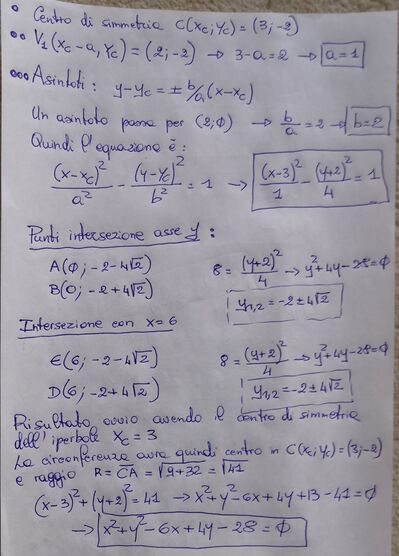 • Centro di simmetria C(xc; yc) = (3; -2)
•• V₁(xc - a, yc) = (2; -2) → 3-a=2 → a=1
••• Asintoti: y-yc = ± b/a (x-xc)
Un asintoto passa per (2; ∅) → b/a = 2 → b=2
Quindi l'equazione è:
(x-xc)²/a² - (y-yc)²/b² = 1 → (x-3)²/1 - (y+2)²/4 = 1
Punti intersezione asse y:
A(∅; -2-4√2) 8 = (y+2)²/4 → y²+4y-28=∅
B(0; -2+4√2) y₁,₂ = -2±4√2
Intersezione con x=6
E(6; -2-4√2) 8 = (y+2)²/4 → y²+4y-28=∅
D(6; -2+4√2) y₁,₂ = -2±4√2
Risultato ovvio avendo il centro di simmetria
dell'iperbole xc = 3
La circonferenza avrà quindi centro in C(xc; yc) = (3; -2)
e raggio R = CA = √9+32 = √41
(x-3)²+(y+2)²=41 → x²+y²-6x+4y+13-41=∅
→ x²+y²-6x+4y-28=∅